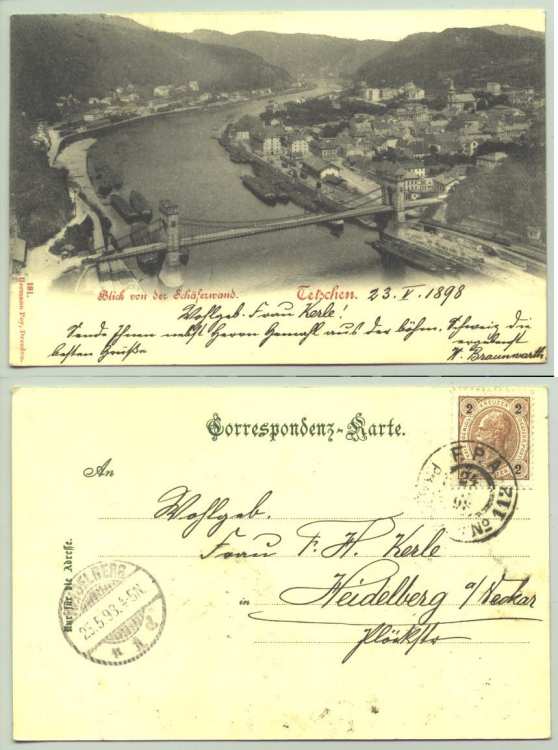 Blick von der Schäferwand. Tetschen. 23. V. 1898
191. Hermann Poy, Dresden.
Wohlgeb. Frau Kerle!
Sende Ihnen nebst Herrn Gemahl aus der böhm. Schweiz die
besten Grüße
ergebenst
W. Braunwarth
Correspondenz-Karte.
2 KREUZER 2
2 2
An
Wohlgeb.
Frau F. H. Kerle
in Heidelberg a/Neckar
Plöckstr
Nur für die Adresse.
HEIDELBERG
25.5.98. 4-5N.
F.P.A.
No 112